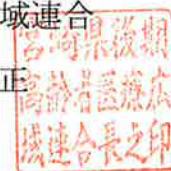 域連合
正
宮崎県後期
高齢者医療広
域連合長之印